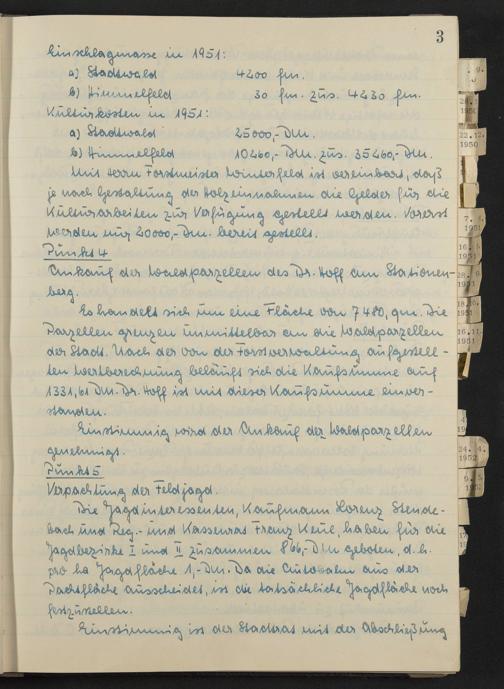 3
Einschlagmasse in 1951:
a) Stadtwald 4200 fm.
b) Himmelfeld 30 fm. zus. 4230 fm.
Kulturkosten in 1951:
a) Stadtwald 25000,- DM.
b) Himmelfeld 10460,- DM. zus. 35460,- DM.
Mit Herrn Forstmeister Winterfeld ist vereinbart, daß
je nach Gestaltung der Holzeinnahmen die Gelder für die
Kulturarbeiten zur Verfügung gestellt werden. Vorerst
werden nur 20000,- DM. bereit gestellt.
Punkt 4
Ankauf der Waldparzellen des Dr. Hoff am Stationen-
berg.
Es handelt sich um eine Fläche von 7480, qm. Die
Parzellen grenzen unmittelbar an die Waldparzellen
der Stadt. Nach der von der Forstverwaltung aufgestell-
ten Wertberechnung beläuft sich die Kaufsumme auf
1331,61 DM. Dr. Hoff ist mit dieser Kaufsumme einver-
standen.
Einstimmig wird der Ankauf der Waldparzellen
genehmigt.
Punkt 5
Verpachtung der Feldjagd.
Die Jagdinteressenten, Kaufmann Lorenz Stende-
bach und Reg.- und Kassenrat Franz Keul, haben für die
Jagdbezirke I und II zusammen 866,- DM geboten, d.h.
pro ha Jagdfläche 1,- DM. Da die Autobahn aus der
Pachtfläche ausscheidet, ist die tatsächliche Jagdfläche noch
festzustellen.
Einstimmig ist der Stadtrat mit der Abschließung
22.12.
1950
1951
1951
1951
1951
16.11.
1951
24. 4.
1952